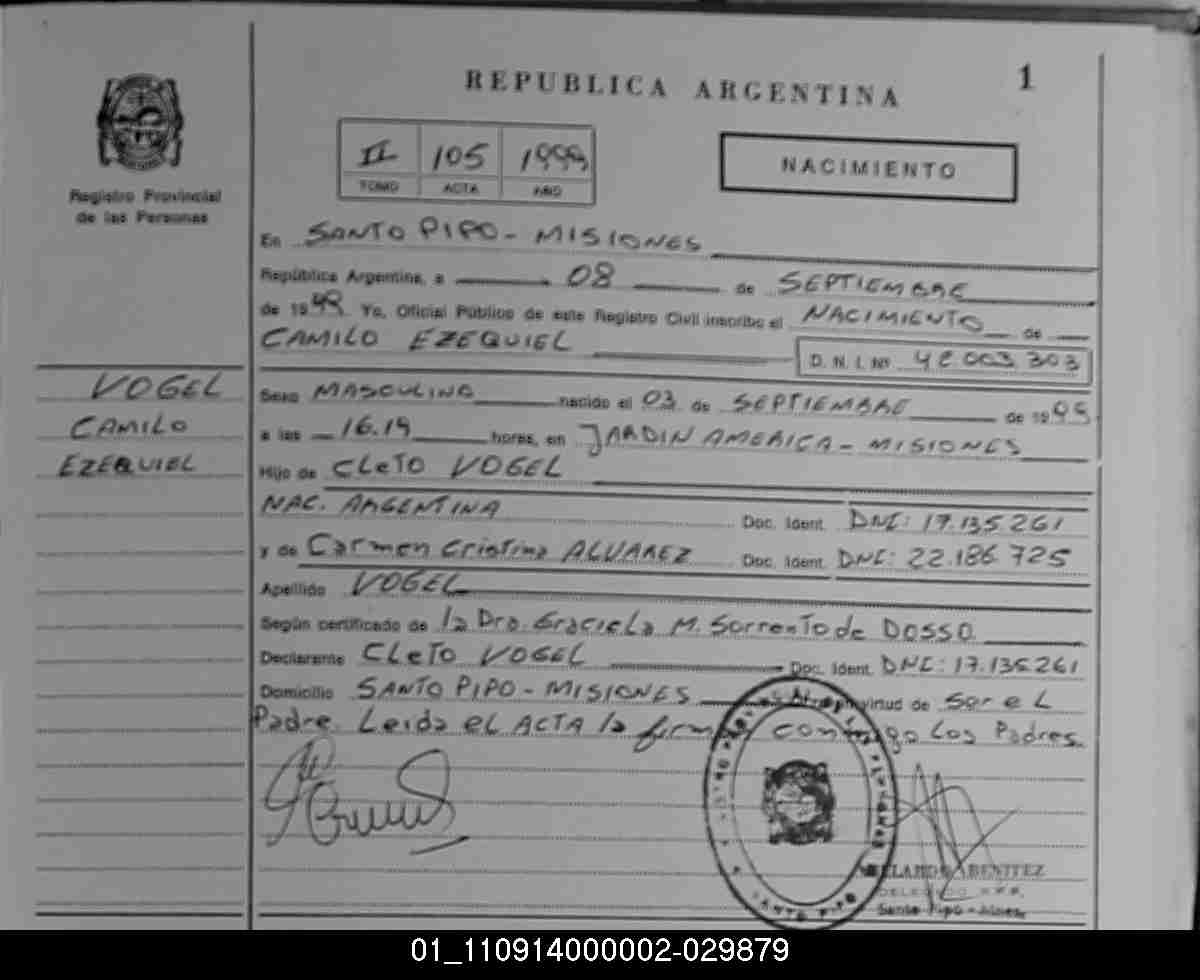 REPUBLICA ARGENTINA
1
Registro Provincial
de las Personas
II 105 1999
TOMO ACTA AÑO
NACIMIENTO
En SANTO PIPO - MISIONES
República Argentina, a 08 de SEPTIEMBRE
de 1999 Yo, Oficial Público de este Registro Civil inscribo el NACIMIENTO de
CAMILO EZEQUIEL
D. N. I. Nº 42.003.303
VOGEL
CAMILO
EZEQUIEL
Sexo MASCULINO nacido el 03 de SEPTIEMBRE de 1999
a las 16.19 horas, en JARDIN AMERICA - MISIONES
Hijo de CLETO VOGEL
NAC. ARGENTINA Doc. Ident. DNI: 17.135.261
y de Carmen Cristina ALVAREZ Doc. Ident. DNI: 22.186.725
Apellido VOGEL
Según certificado de la Dra. Graciela M. Sorrento de DOSSO
Declarante CLETO VOGEL Doc. Ident. DNI: 17.135.261
Domicilio SANTO PIPO - MISIONES virtud de ser el
Padre. Leida el ACTA la firman conmigo Los Padres.
BENITEZ
DELEGADO
Santo Pipo - Mnes.
SANTO PIPO
01_110914000002-029879